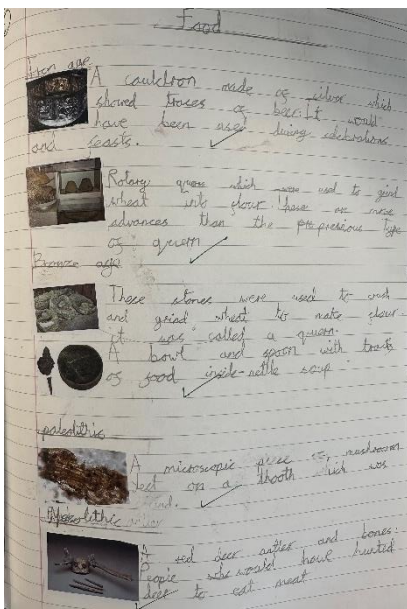 Food
Iron age
A cauldron made of silver which
showed traces of beer. It would
have been used during celebrations
and feasts.
Rotary quern which were used to grind
wheat into flour these are more
advances than the previous type
of quern
Bronze age
These stones were used to crush
and grind wheat to make flour
it was called a quern.
A bowl and spoon with traces
of food inside-nettle soup
paleolithic
A microscopic piece of mushroom
left on a tooth which was
found.
Neolithic
A red deer antler and bones.
People who would have hunted
deer to eat meat